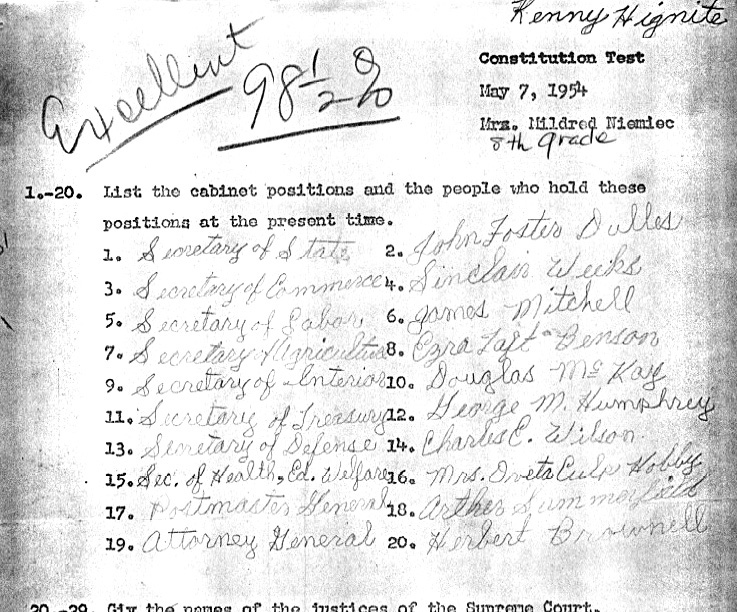 Kenny Hignite
Excellent 98 1/2 %
Constitution Test
May 7, 1954
Mrs. Mildred Niemiec
8th grade
1.-20. List the cabinet positions and the people who hold these
positions at the present time.
1. Secretary of State 2. John Foster Dulles
3. Secretary of Commerce 4. Sinclair Weeks
5. Secretary of Labor 6. James Mitchell
7. Secretary Agriculture 8. Ezra Taft Benson
9. Secretary of Interior 10. Douglas McKay
11. Secretary of Treasury 12. George M. Humphrey
13. Secretary of Defense 14. Charles E. Wilson
15. Sec. of Health, Ed. Welfare 16. Mrs. Oveta Culp Hobby
17. Postmaster General 18. Arther Summerfield
19. Attorney General 20. Herbert Brownell
20.-29. Giv the names of the justices of the Supreme Court.